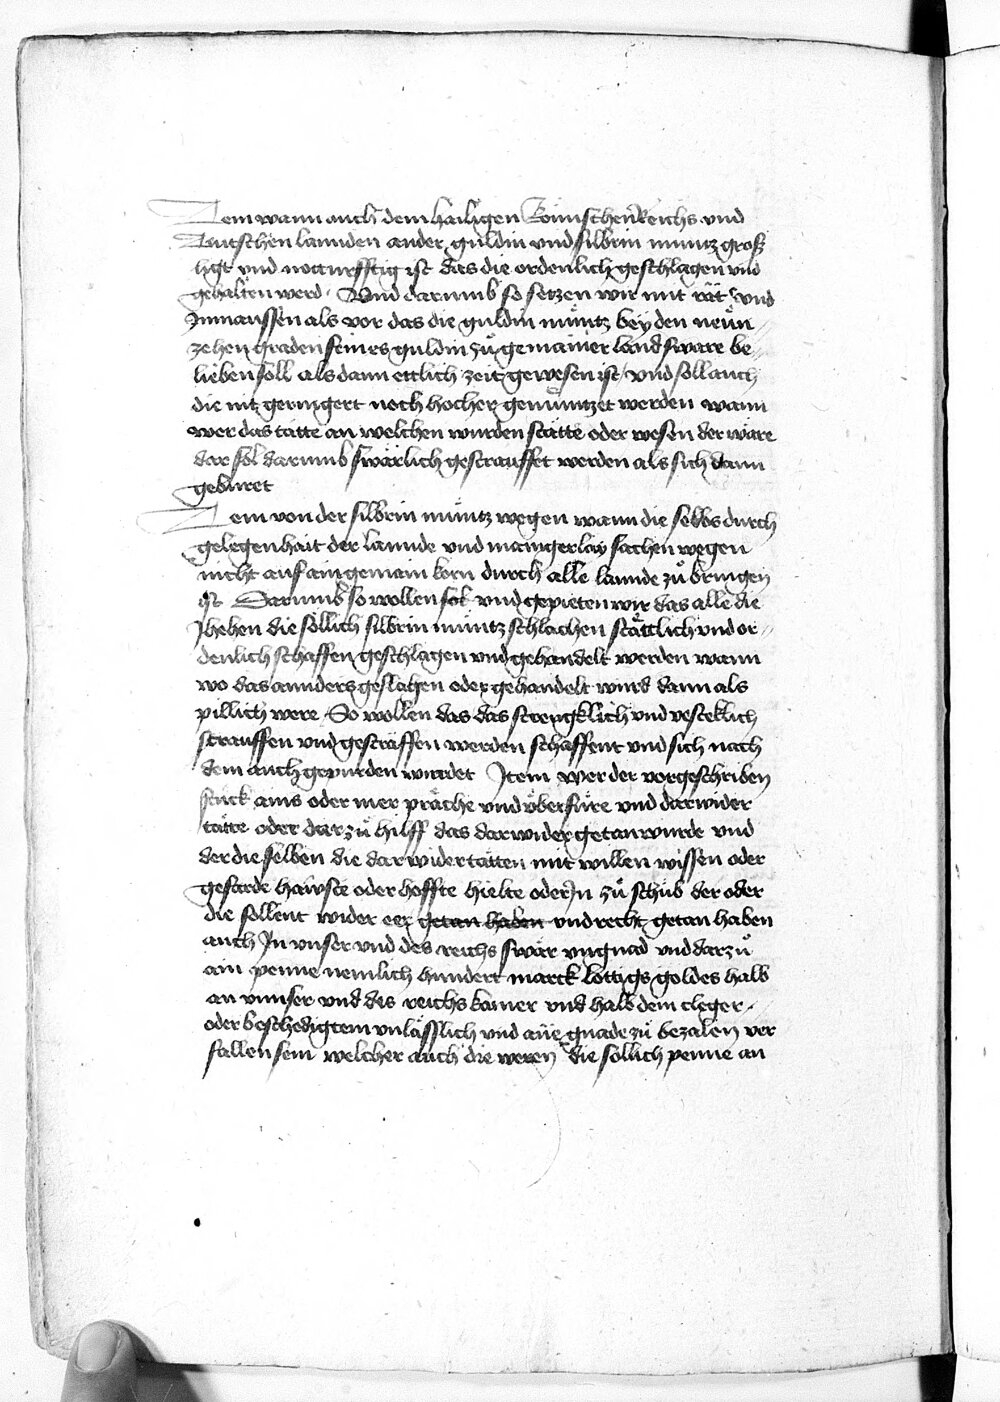 Item wann auch dem hailigen Römischen Reichs und
Deutschen lannden ander guldin und silbrin muntz groß
ligt und notturfftig ist das die ordenlich geschlagen und
gehalten werd. Und darumb so setzen wir mit rät und
Inmaussen als vor das die guldin müntz bey den neün
zehen graden feines guldin zu gemainer landsware be
lieben soll als dann ettlich zeit gewesen ist und soll auch
die nit geringert noch hocher gemüntzet werden wann
wer das tätte an welchen wurden stätte oder wesen der wäre
der sol darumb swärlich gestraufft werden als sich dann
geburet
Item von der silbrin müntz wegen wann die selbs durch
gelegenhait der lannde und maingerlay sachen wegen
nicht auf ain gemain korn durch alle lannde zu bringen
ist Darumb so wollen und gepieten wir das alle die
Ihehen die söllich silbrin müntz schlachen stättlich und or
denlich schaffen geschlagen und gehandelt werden wann
wo das annders geslahen oder gehandelt wurd dann als
pillich were So wollen das das strengklich und vesteklich
strauffen und gesträffen werden schaffent und sich nach
dem auch gepurden wurdet Item wer der vorgeschriben
stuck ains oder mer präche und überfüre und darwider
tätte oder darzu hilff das darwider getan wurde und
der die selben die darwider tätten mit willen wissen oder
gefärde hawste oder hoffte hielte oder In zu schub der oder
die sollent wider eer getan haben und recht getan haben
auch In unser und des reichs swär ungnad und darzu
ain penne nemlich hundert marck lottigs goldes halb
an unnser und des reichs kamer und halb dem cleger
oder beschedigtem unläßlich und ane gnade zu bezalen ver
fallen sein welcher auch die weren die söllich penne an